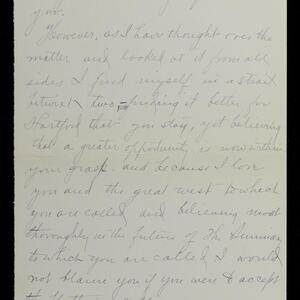 you.
However, as I have thought over the
matter and looked at it from all
sides I find myself in a strait
betwixt two - finding it better for
Hartford that you stay, yet believing
that a greater opportunity is now within
your grasp. and because I love
you and the great west to which
you are called and believing most
thoroughly in the future of The Seminary
to which you are called I would
not blame you if you were to accept